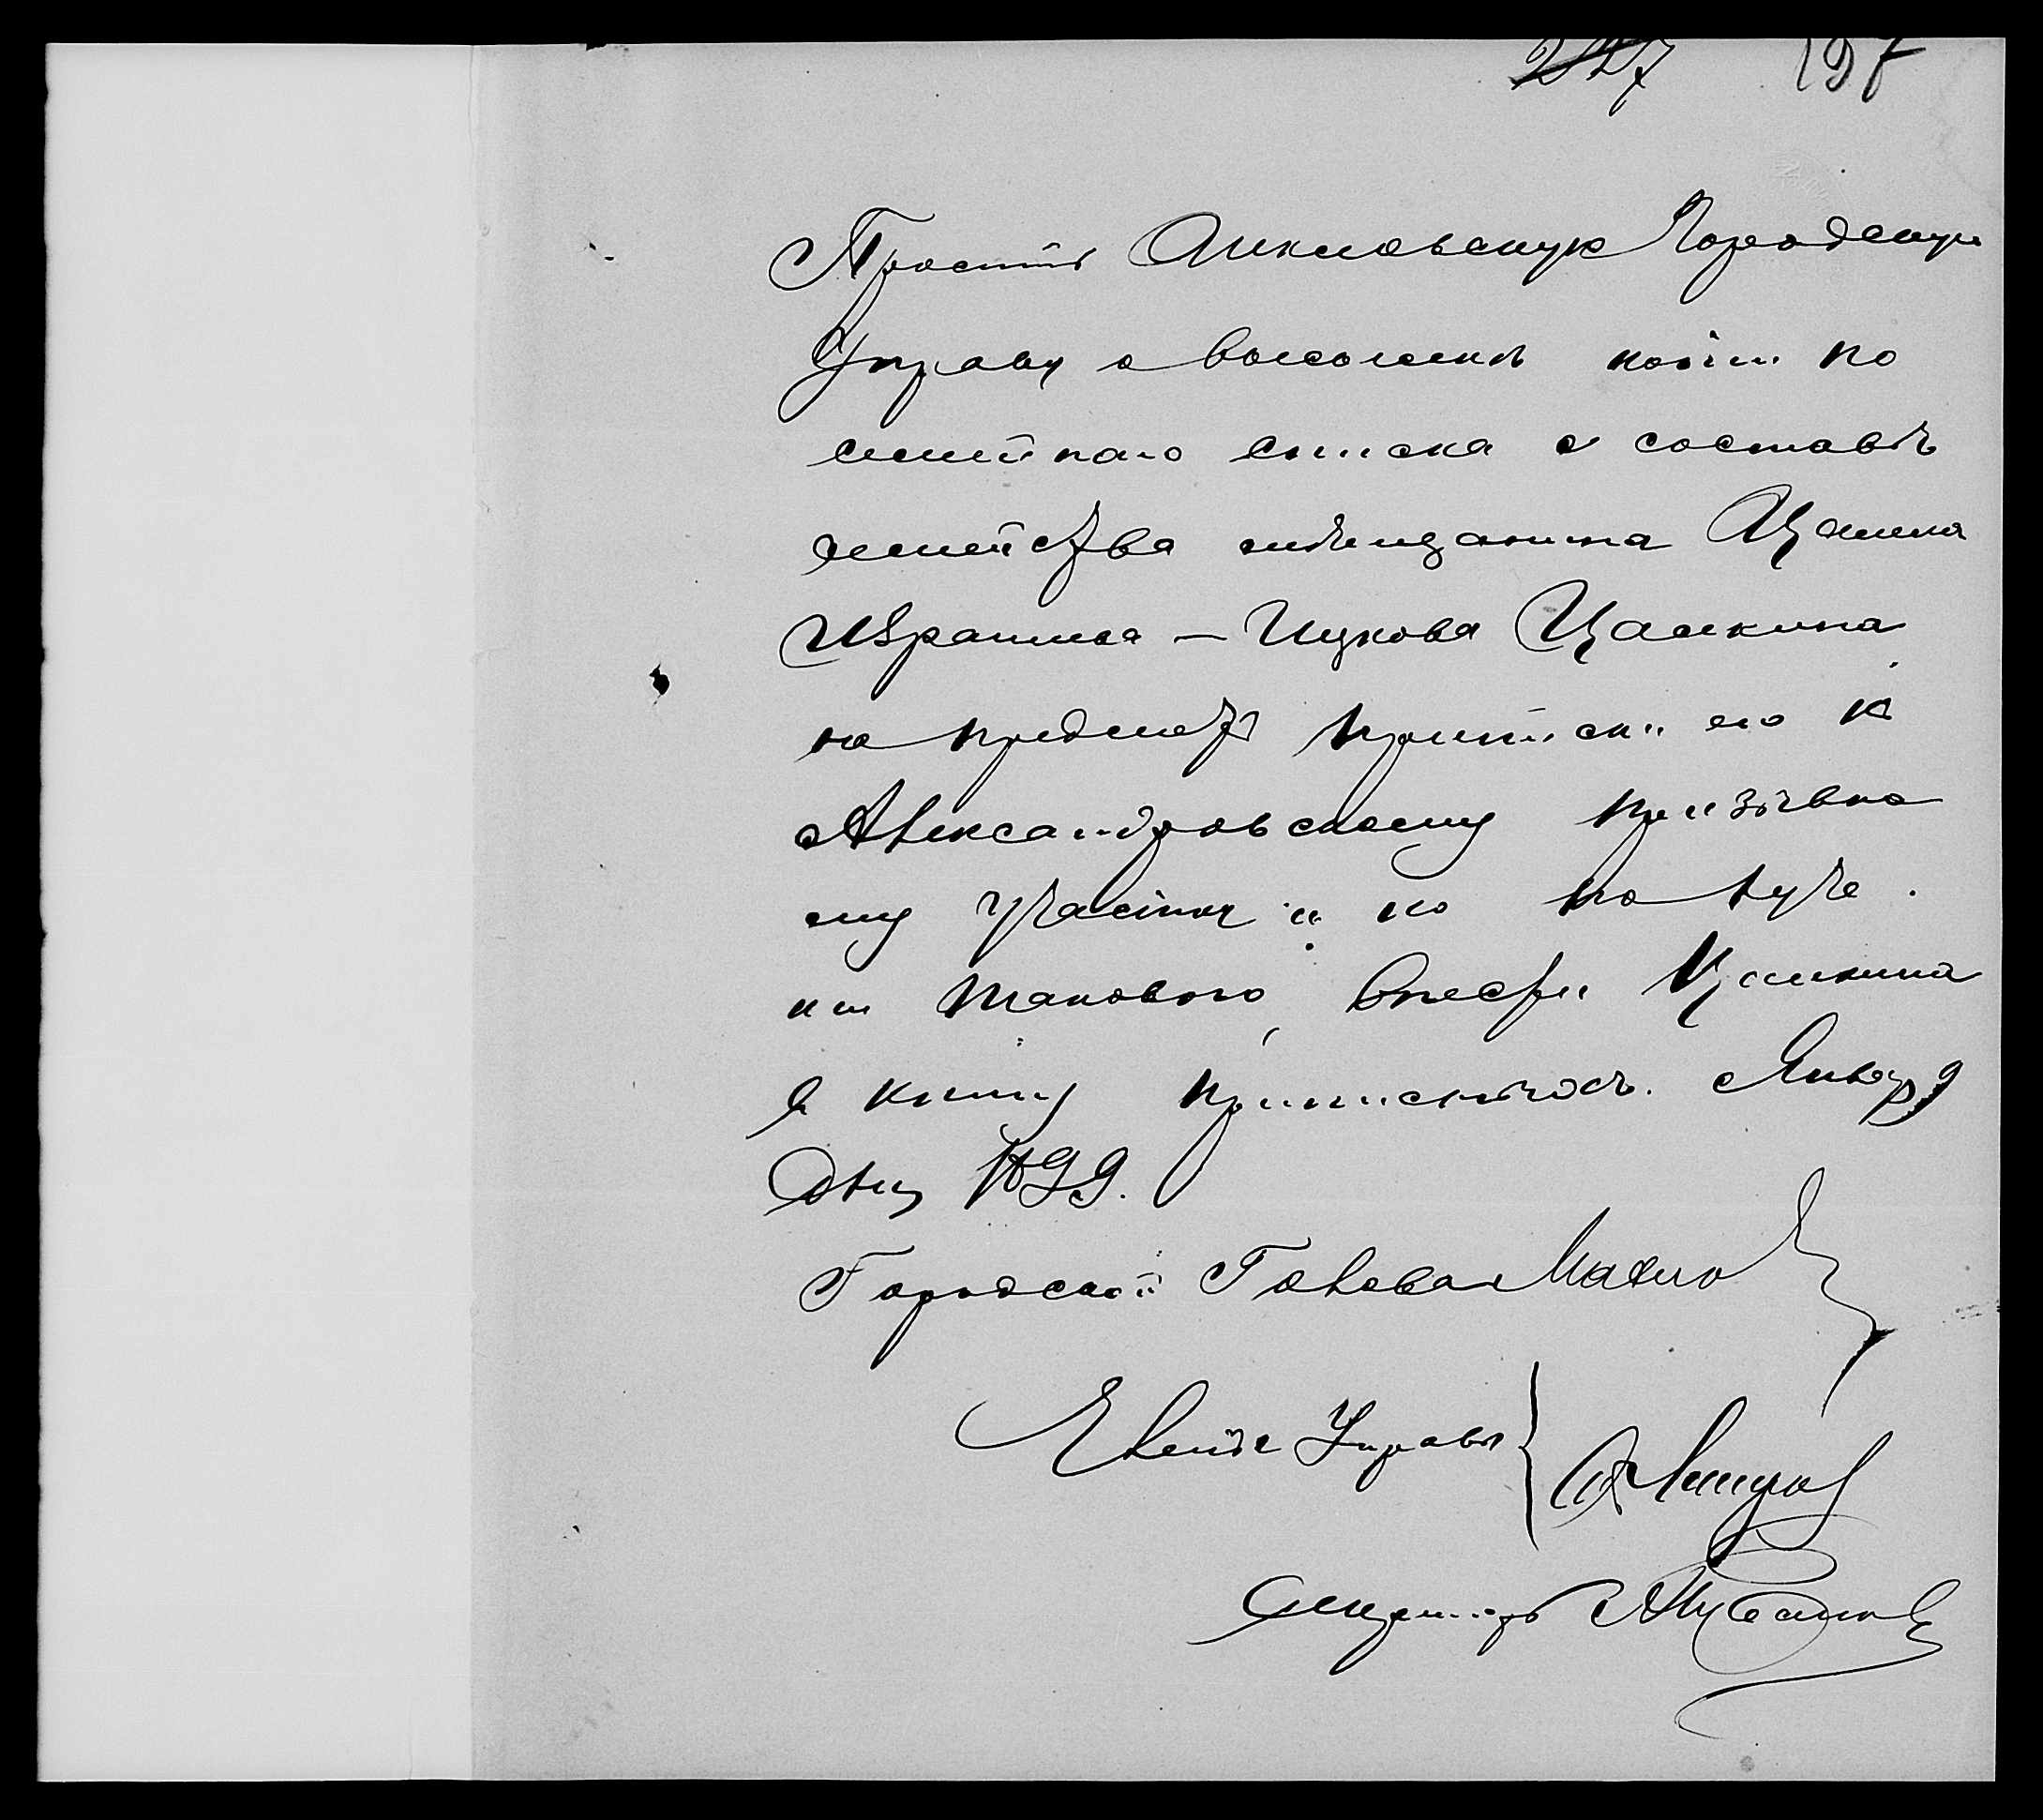 227 197
Просить Оникловскую Городскую
Управу о высылкѣ копіи по
семейнаго списка о составѣ
семейства мѣщанина
Израиля – Ицкова Цалкина
на предметъ приписки его къ
Александровскому призывно
му участку и по получе
нии таковаго, внести Цалкина
в книгу приписныхъ. Января
дня 1899.
Городской Голова
Члены Управы
Секретарь